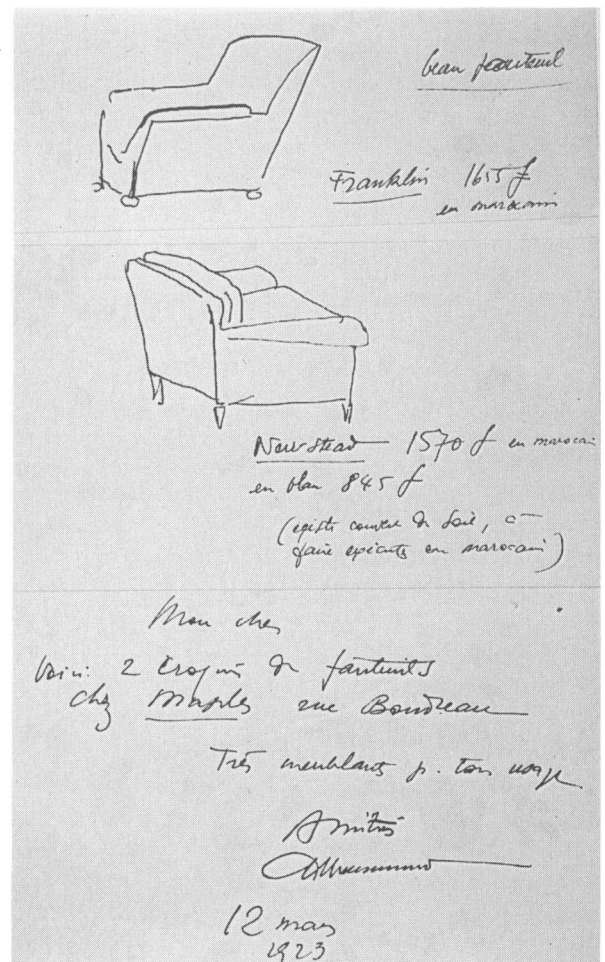 beau fauteuil
Franklin 1655 f
en marocain
Newstead 1570 f en marocain
en blan 845 f
(existe couvert de soie, à
faire exécuter en marocain)
Mon cher
Voici 2 croquis de fauteuils
chez Maples rue Boudreau
Très meublants p. ton usage
Amitiés
12 mars
1923